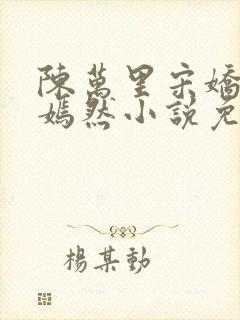 陳萬里宋嬌
嫣然小説免
楊某動